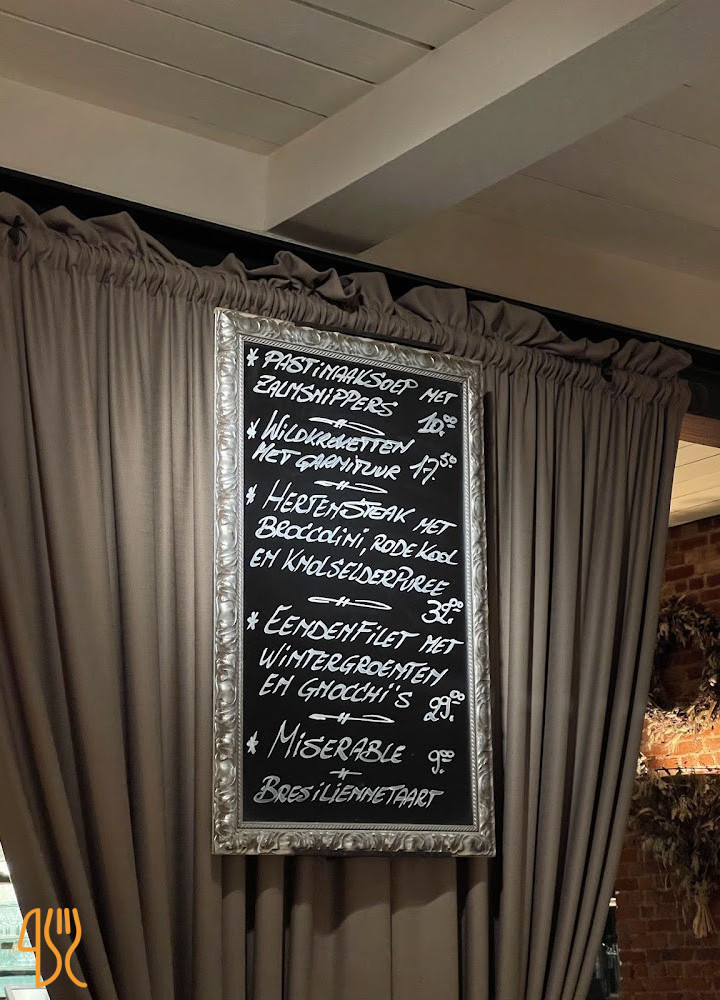 * PASTINAAKSOEP MET
ZALMSNIPPERS 10.00
* WILDKROKETTEN
MET GARNITUUR 17.50
* HERTENSTEAK MET
BROCCOLINI, RODE KOOL
EN KNOLSELDERPUREE
32.00
* EENDENFILET MET
WINTERGROENTEN
EN GNOCCHI'S 29.00
* MISERABLE 9.00
BRESILIENNETAART